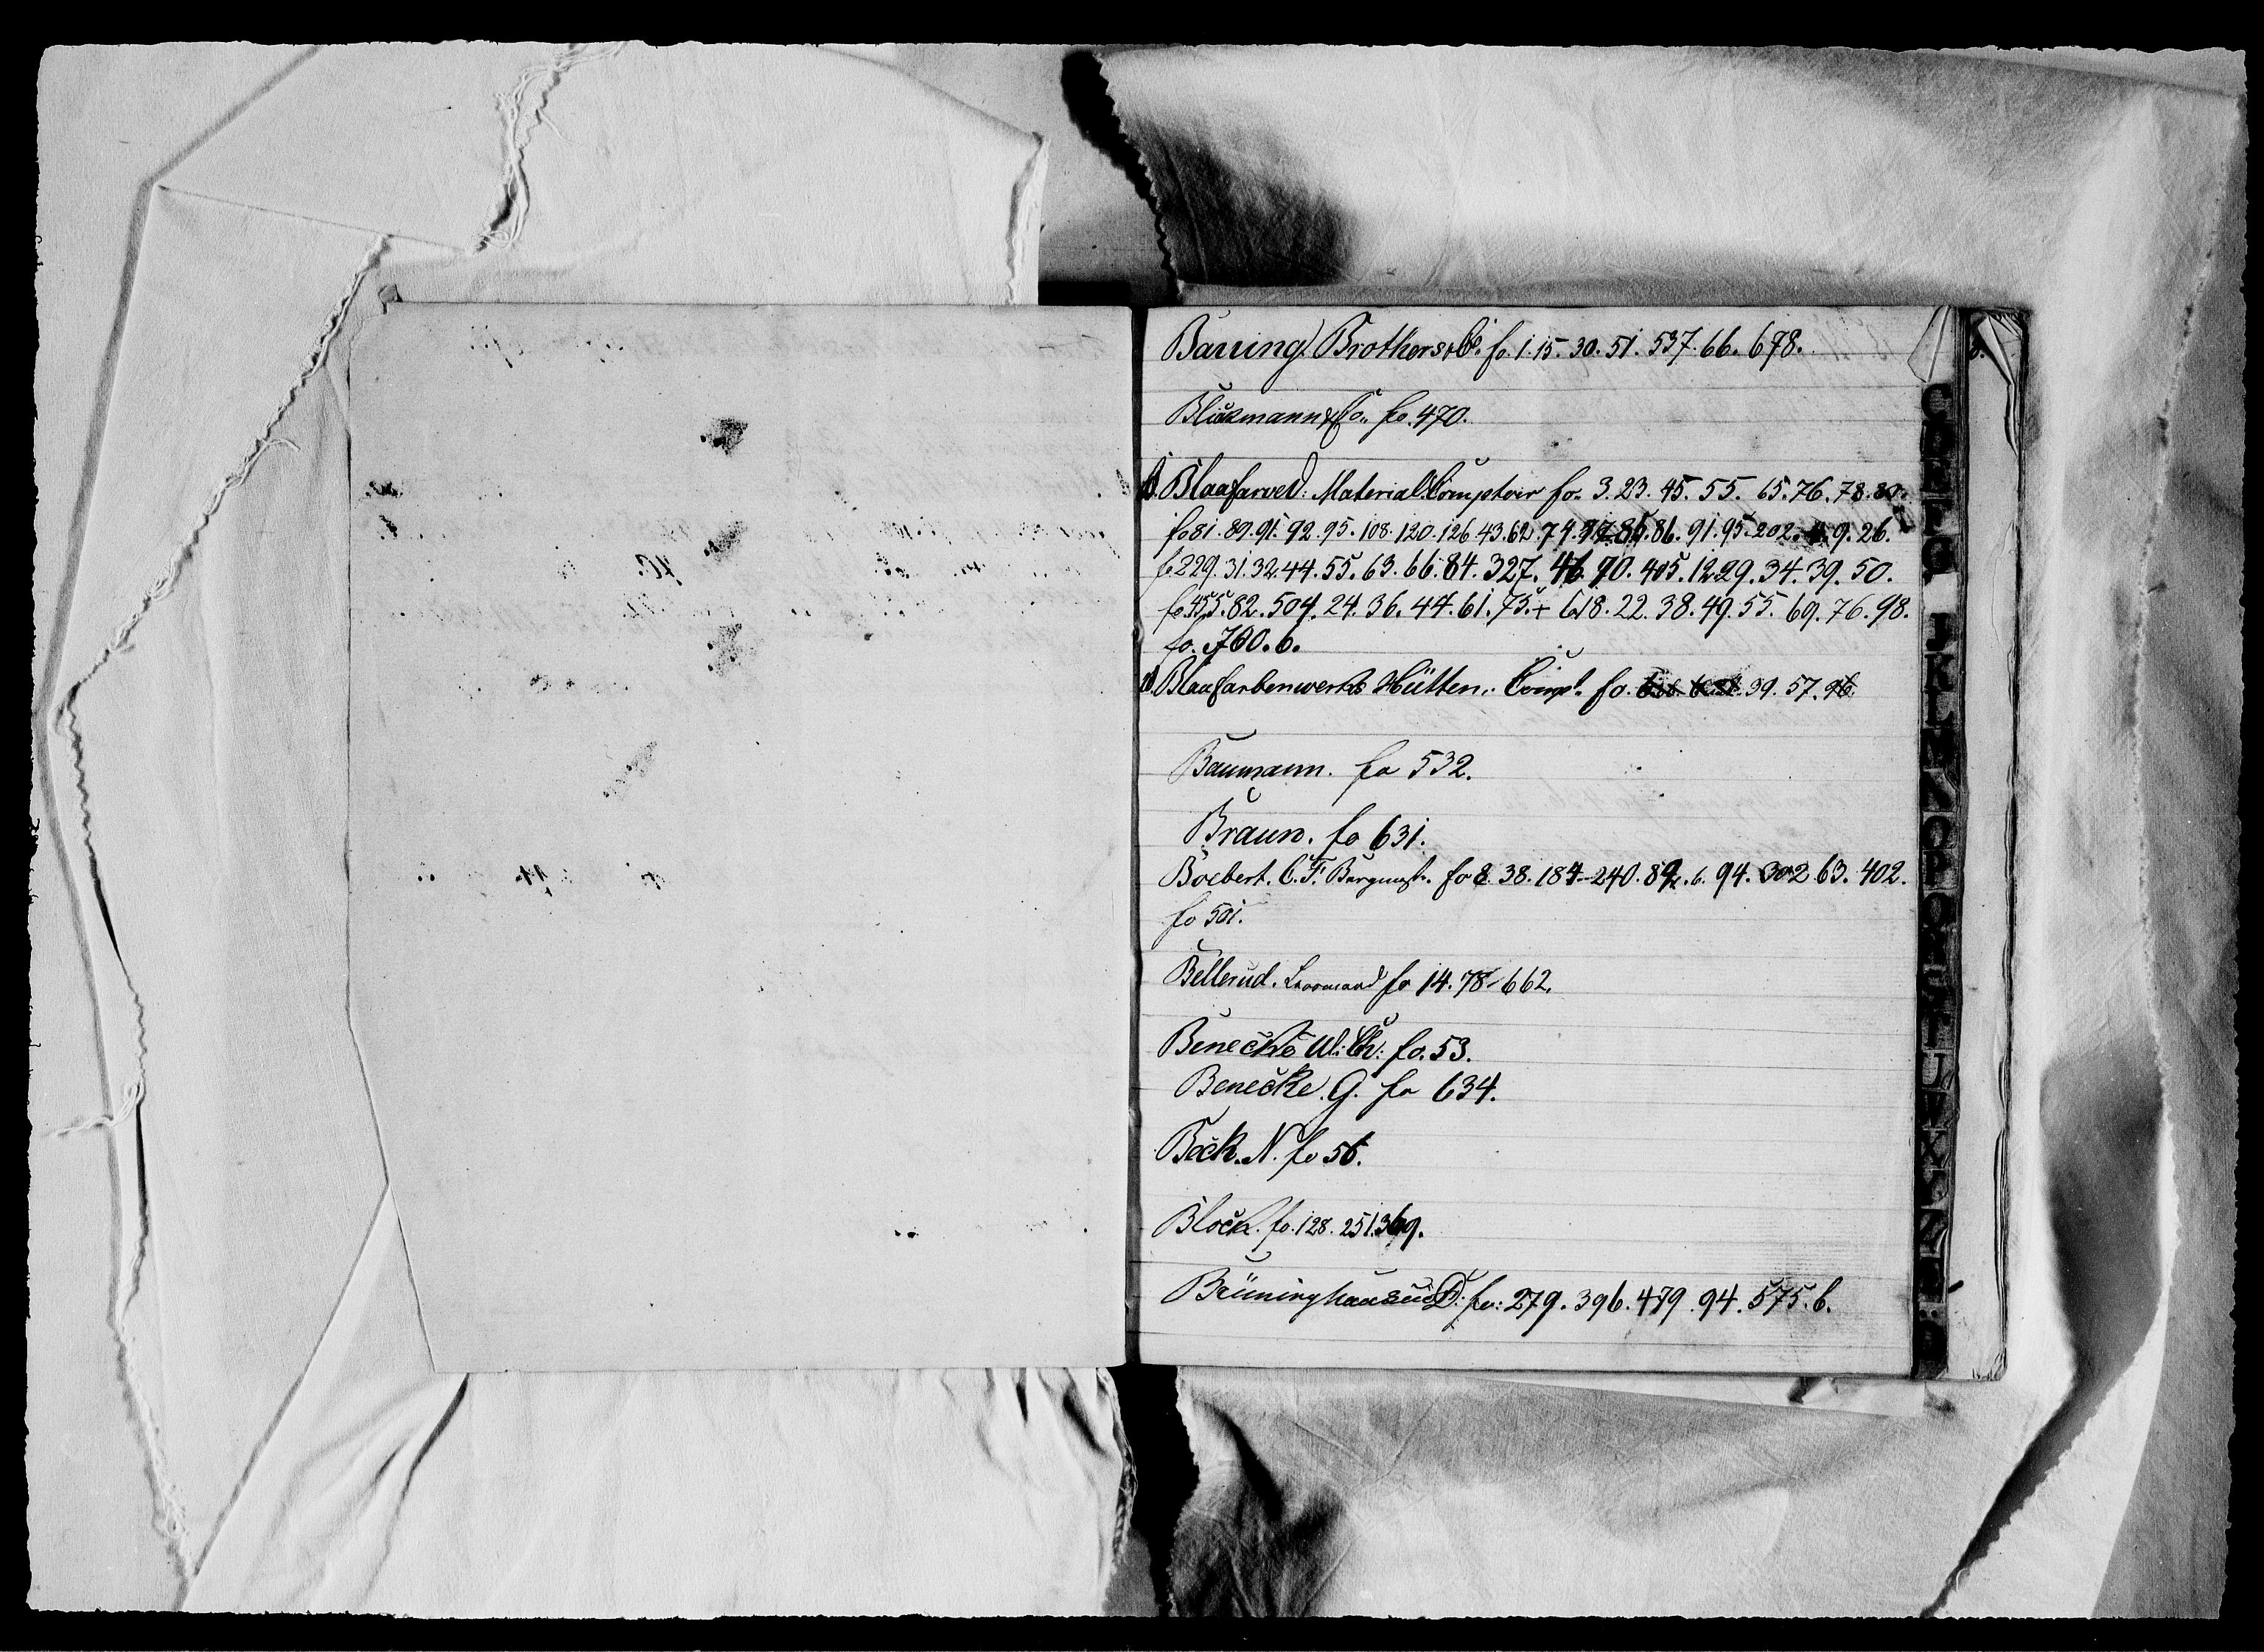 Baring Brothers & Co. fo. 1. 15. 30. 51. 537. 66. 678.
Blickmann & Co. fo. 470.
Blaafarvev. Material Comptoir fo. 3. 23. 45. 55. 65. 76. 78. 80.
fo 81. 89. 91. 92. 95. 108. 120. 126 43. 62. 74. 86. 91. 95. 202. 9. 26.
fo 229. 31. 32. 44. 55. 63. 66. 84. 327. 46. 90. 405. 12 29. 34. 39. 50.
fo 455. 82. 504. 24. 36. 44. 61. 75. + 618. 22. 38. 49. 55. 69. 76. 98.
fo. 700. 6.
Blaufarbenwerks Hütten. Compt. fo. 39. 57. 96.
Baumann. fo 532.
Braun. fo 631.
Boebert. C. F. Bergmstr. fo 8. 38. 184 - 240. 89. 6. 94. 302 63. 402.
fo 501.
Bellerud. fo 14. 78 - 662.
Benecke W: Ch: fo. 53.
Benecke. G. fo 634.
Beck. N. fo 56.
Block. fo. 128. 251. 369.
Brüninghausen D: fo: 279. 396. 479. 94. 575. 6.